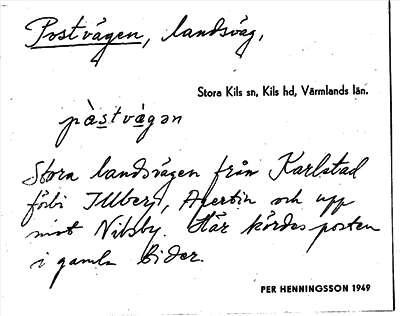 Postvägen, landsväg,
Stora Kils sn, Kils hd, Värmlands län.
pàstvägən
Stora landsvägen från Karlstad
förbi Illberg, Apertin och upp
mot Nilsby. Här kördes posten
i gamla tider.
PER HENNINGSSON 1949